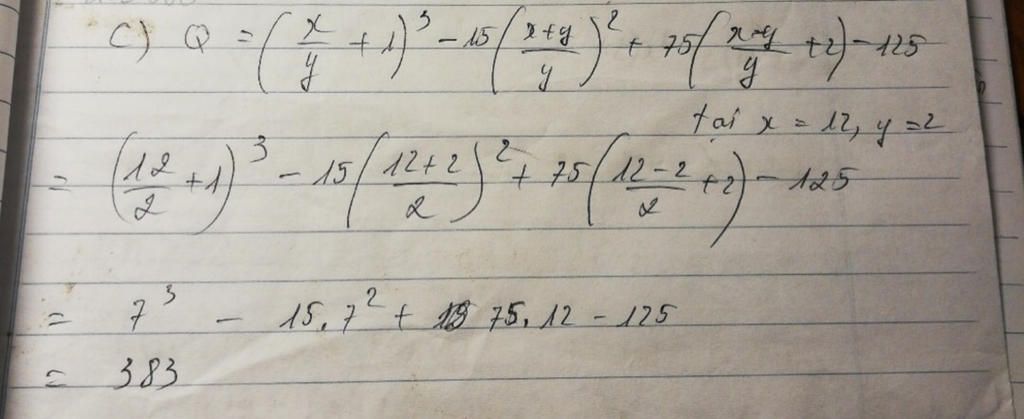 c) Q = (x/y + 1)^3 - 15((x+y)/y)^2 + 75((x-y)/y + 2) - 125
tại x = 12, y = 2
= (12/2 + 1)^3 - 15((12+2)/2)^2 + 75((12-2)/2 + 2) - 125
= 7^3 - 15.7^2 + 75.12 - 125
= 383